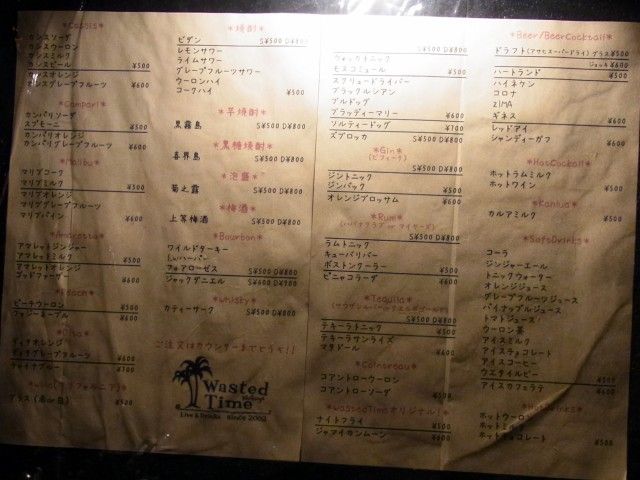 *Cassis*
カシスソーダ
カシスウーロン
カシスミルク ¥500
カシスビール
カシスオレンジ
カシスグレープフルーツ ¥600
*Campari*
カンパリソーダ
スプモーニ ¥500
カンパリオレンジ
カンパリグレープフルーツ ¥600
*Malibu*
マリブコーク
マリブミルク ¥500
マリブオレンジ
マリブグレープフルーツ
マリブパイン ¥600
*Amaretto*
アマレットジンジャー
アマレットミルク ¥500
アマレットオレンジ
ゴッドファーザー ¥600
*Peach*
ピーチウーロン ¥500
ファジーネーブル ¥600
*Dita*
ディタオレンジ
ディタグレープフルーツ ¥600
チャイナブルー
グラス(赤or白) ¥500
*焼酎*
ビダン S¥500 D¥800
レモンサワー
ライムサワー
グレープフルーツサワー
ウーロンハイ
コークハイ ¥500
*芋焼酎*
黒霧島 S¥500 D¥800
*黒糖焼酎*
喜界島 S¥500 D¥800
*泡盛*
菊之露 S¥500 D¥800
*梅酒*
上等梅酒 S¥500 D¥800
*Bourbon*
ワイルドターキー
I.W.ハーパー
フォアローゼス S¥500 D¥800
ジャックダニエル S¥600 D¥900
*Whisky*
カティーサーク S¥500 D¥800
ご注文はカウンターまでどうぞ!!
Wasted Time
Live & Drinks Since 2002
S¥500 D¥800
ウォッカトニック
モスコミュール ¥500
スクリュードライバー
ブラックルシアン
ブルドッグ
ブラッディーマリー ¥600
ソルティードッグ ¥700
ズブロッカ S¥500 D¥800
*Gin*
(ビフィータ) S¥500 D¥800
ジントニック
ジンバック ¥500
オレンジブロッサム ¥600
*Rum*
S¥500 D¥800
ラムトニック
キューバリバー
ボストンクーラー ¥500
ピニャコラーダ ¥600
*Tequila*
S¥500 D¥800
テキーラトニック ¥500
テキーラサンライズ
マタドール ¥600
*Cointreau*
コアントローウーロン
コアントローソーダ ¥500
*WastedTimeオリジナル!*
ナイトフライ ¥500
ジャマイカンムーン ¥600
*Beer/BeerCocktail*
ドラフト(アサヒスーパードライ) グラス¥500
ジョッキ¥600
ハートランド ¥500
ハイネケン
コロナ
ZIMA
ギネス ¥600
レッドアイ
シャンディーガフ ¥600
*HotCocktail*
ホットラムミルク
ホットワイン ¥500
*Kahlua*
カルアミルク ¥500
*SoftDrinks*
コーラ
ジンジャーエール
トニックウォーター
オレンジジュース
グレープフルーツジュース
パイナップルジュース
トマトジュース
ウーロン茶
アイスミルク
アイスチョコレート
アイスコーヒー
ウエタイルビー ¥500
アイスカフェラテ ¥600
*HotDrinks*
ホットウーロン
ホットミルク
ホットチョコレート ¥500